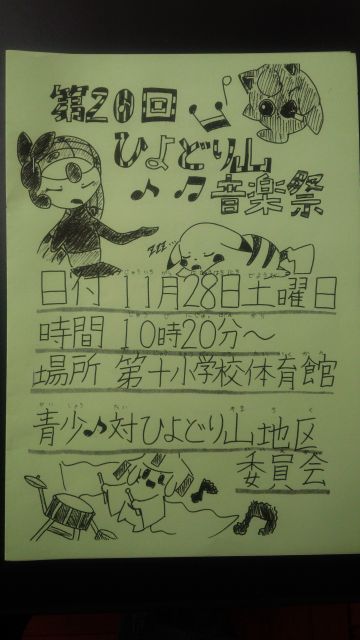 第20回
ひよどり山
音楽祭
zzz...
日付 11月28日土曜日
時間 10時20分～
場所 第十小学校体育館
青少♪対ひよどり山地区
委員会